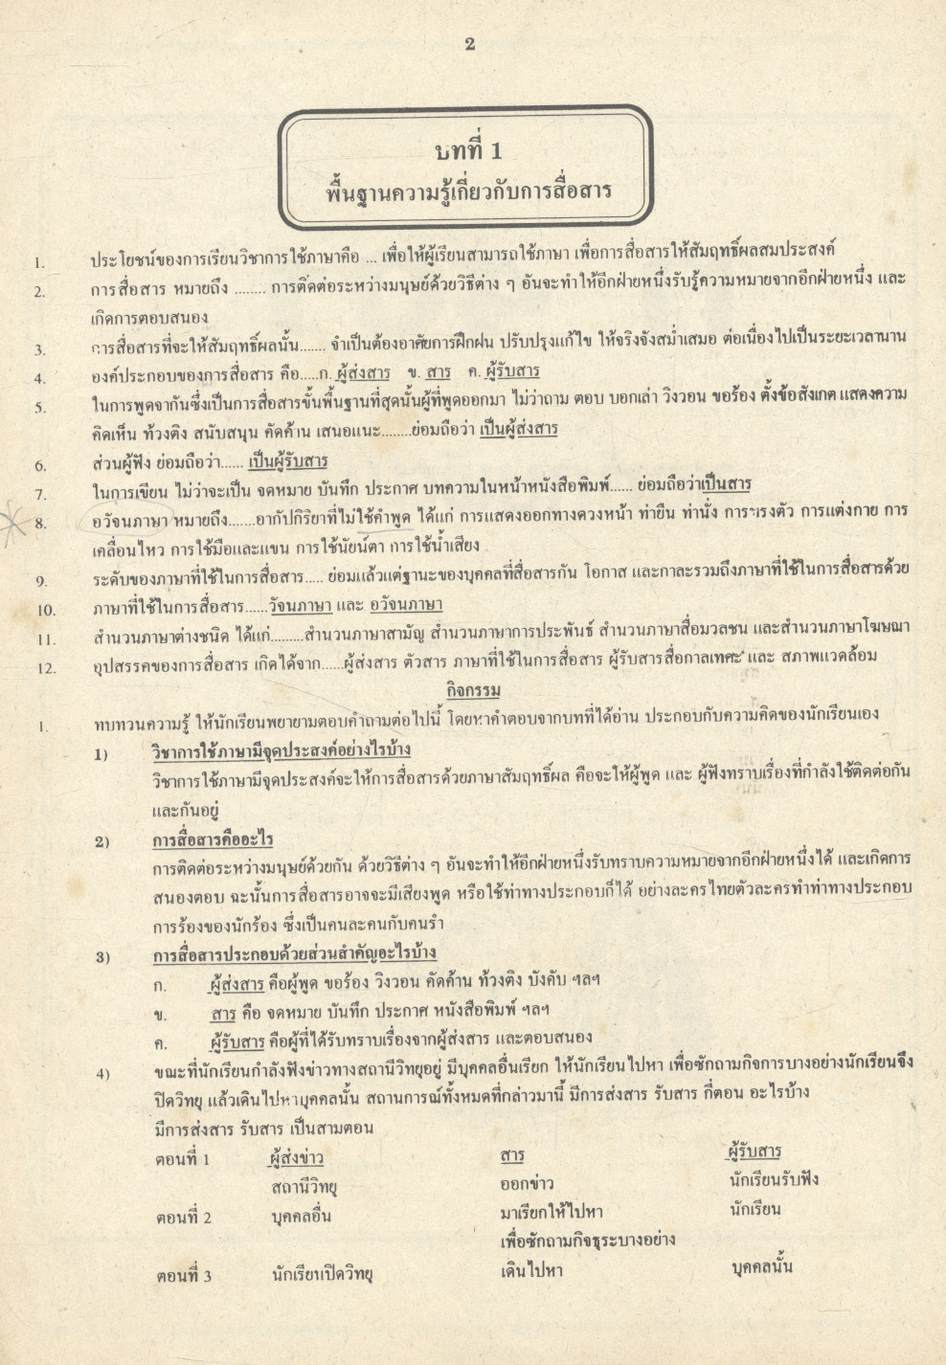 2
บทที่ 1
พื้นฐานความรู้เกี่ยวกับการสื่อสาร
1. ประโยชน์ของการเรียนวิชาการใช้ภาษาคือ ... เพื่อให้ผู้เรียนสามารถใช้ภาษา เพื่อการสื่อสารให้สัมฤทธิ์ผลสมประสงค์
2. การสื่อสาร หมายถึง ........ การติดต่อระหว่างมนุษย์ด้วยวิธีต่าง ๆ อันจะทำให้อีกฝ่ายหนึ่งรับรู้ความหมายจากอีกฝ่ายหนึ่ง และ
เกิดการตอบสนอง
3. การสื่อสารที่จะให้สัมฤทธิ์ผลนั้น....... จำเป็นต้องอาศัยการฝึกฝน ปรับปรุงแก้ไข ให้จริงจังสม่ำเสมอ ต่อเนื่องไปเป็นระยะเวลานาน
4. องค์ประกอบของการสื่อสาร คือ.....ก. ผู้ส่งสาร ข. สาร ค. ผู้รับสาร
5. ในการพูดจากันซึ่งเป็นการสื่อสารขั้นพื้นฐานที่สุดนั้นผู้ที่พูดออกมา ไม่ว่าถาม ตอบ บอกเล่า วิงวอน ขอร้อง ตั้งข้อสังเกต แสดงความ
คิดเห็น ท้วงติง สนับสนุน คัดค้าน เสนอแนะ........ย่อมถือว่า เป็นผู้ส่งสาร
6. ส่วนผู้ฟัง ย่อมถือว่า...... เป็นผู้รับสาร
7. ในการเขียน ไม่ว่าจะเป็น จดหมาย บันทึก ประกาศ บทความในหน้าหนังสือพิมพ์...... ย่อมถือว่าเป็นสาร
8. อวัจนภาษา หมายถึง.......อากัปกิริยาที่ไม่ใช้คำพูด ได้แก่ การแสดงออกทางดวงหน้า ท่ายืน ท่านั่ง การทรงตัว การแต่งกาย การ
เคลื่อนไหว การใช้มือและแขน การใช้นัยน์ตา การใช้น้ำเสียง
9. ระดับของภาษาที่ใช้ในการสื่อสาร..... ย่อมแล้วแต่ฐานะของบุคคลที่สื่อสารกัน โอกาส และกาละรวมถึงภาษาที่ใช้ในการสื่อสารด้วย
10. ภาษาที่ใช้ในการสื่อสาร......วัจนภาษา และ อวัจนภาษา
11. สำนวนภาษาต่างชนิด ได้แก่.........สำนวนภาษาสามัญ สำนวนภาษาการประพันธ์ สำนวนภาษาสื่อมวลชน และสำนวนภาษาโฆษณา
12. อุปสรรคของการสื่อสาร เกิดได้จาก......ผู้ส่งสาร ตัวสาร ภาษาที่ใช้ในการสื่อสาร ผู้รับสารสื่อกาลเทศะ และ สภาพแวดล้อม
กิจกรรม
1. ทบทวนความรู้ ให้นักเรียนพยายามตอบคำถามต่อไปนี้ โดยหาคำตอบจากบทที่ได้อ่าน ประกอบกับความคิดของนักเรียนเอง
1) วิชาการใช้ภาษามีจุดประสงค์อย่างไรบ้าง
วิชาการใช้ภาษามีจุดประสงค์จะให้การสื่อสารด้วยภาษาสัมฤทธิ์ผล คือจะให้ผู้พูด และ ผู้ฟังทราบเรื่องที่กำลังใช้ติดต่อกัน
และกันอยู่
2) การสื่อสารคืออะไร
การติดต่อระหว่างมนุษย์ด้วยกัน ด้วยวิธีต่าง ๆ อันจะทำให้อีกฝ่ายหนึ่งรับทราบความหมายจากอีกฝ่ายหนึ่งได้ และเกิดการ
สนองตอบ ฉะนั้นการสื่อสารอาจจะมีเสียงพูด หรือใช้ท่าทางประกอบก็ได้ อย่างละครไทยตัวละครทำท่าทางประกอบ
การร้องของนักร้อง ซึ่งเป็นคนละคนกับคนรำ
3) การสื่อสารประกอบด้วยส่วนสำคัญอะไรบ้าง
ก. ผู้ส่งสาร คือผู้พูด ขอร้อง วิงวอน คัดค้าน ท้วงติง บังคับ ฯลฯ
ข. สาร คือ จดหมาย บันทึก ประกาศ หนังสือพิมพ์ ฯลฯ
ค. ผู้รับสาร คือผู้ที่ได้รับทราบเรื่องจากผู้ส่งสาร และตอบสนอง
4) ขณะที่นักเรียนกำลังฟังข่าวทางสถานีวิทยุอยู่ มีบุคคลอื่นเรียก ให้นักเรียนไปหา เพื่อซักถามกิจการบางอย่างนักเรียนจึง
ปิดวิทยุ แล้วเดินไปหาบุคคลนั้น สถานการณ์ทั้งหมดที่กล่าวมานี้ มีการส่งสาร รับสาร กี่ตอน อะไรบ้าง
มีการส่งสาร รับสาร เป็นสามตอน
ตอนที่ 1 ผู้ส่งข่าว สาร ผู้รับสาร
สถานีวิทยุ ออกข่าว นักเรียนรับฟัง
ตอนที่ 2 บุคคลอื่น มาเรียกให้ไปหา นักเรียน
เพื่อซักถามกิจธุระบางอย่าง
ตอนที่ 3 นักเรียนปิดวิทยุ เดินไปหา บุคคลนั้น